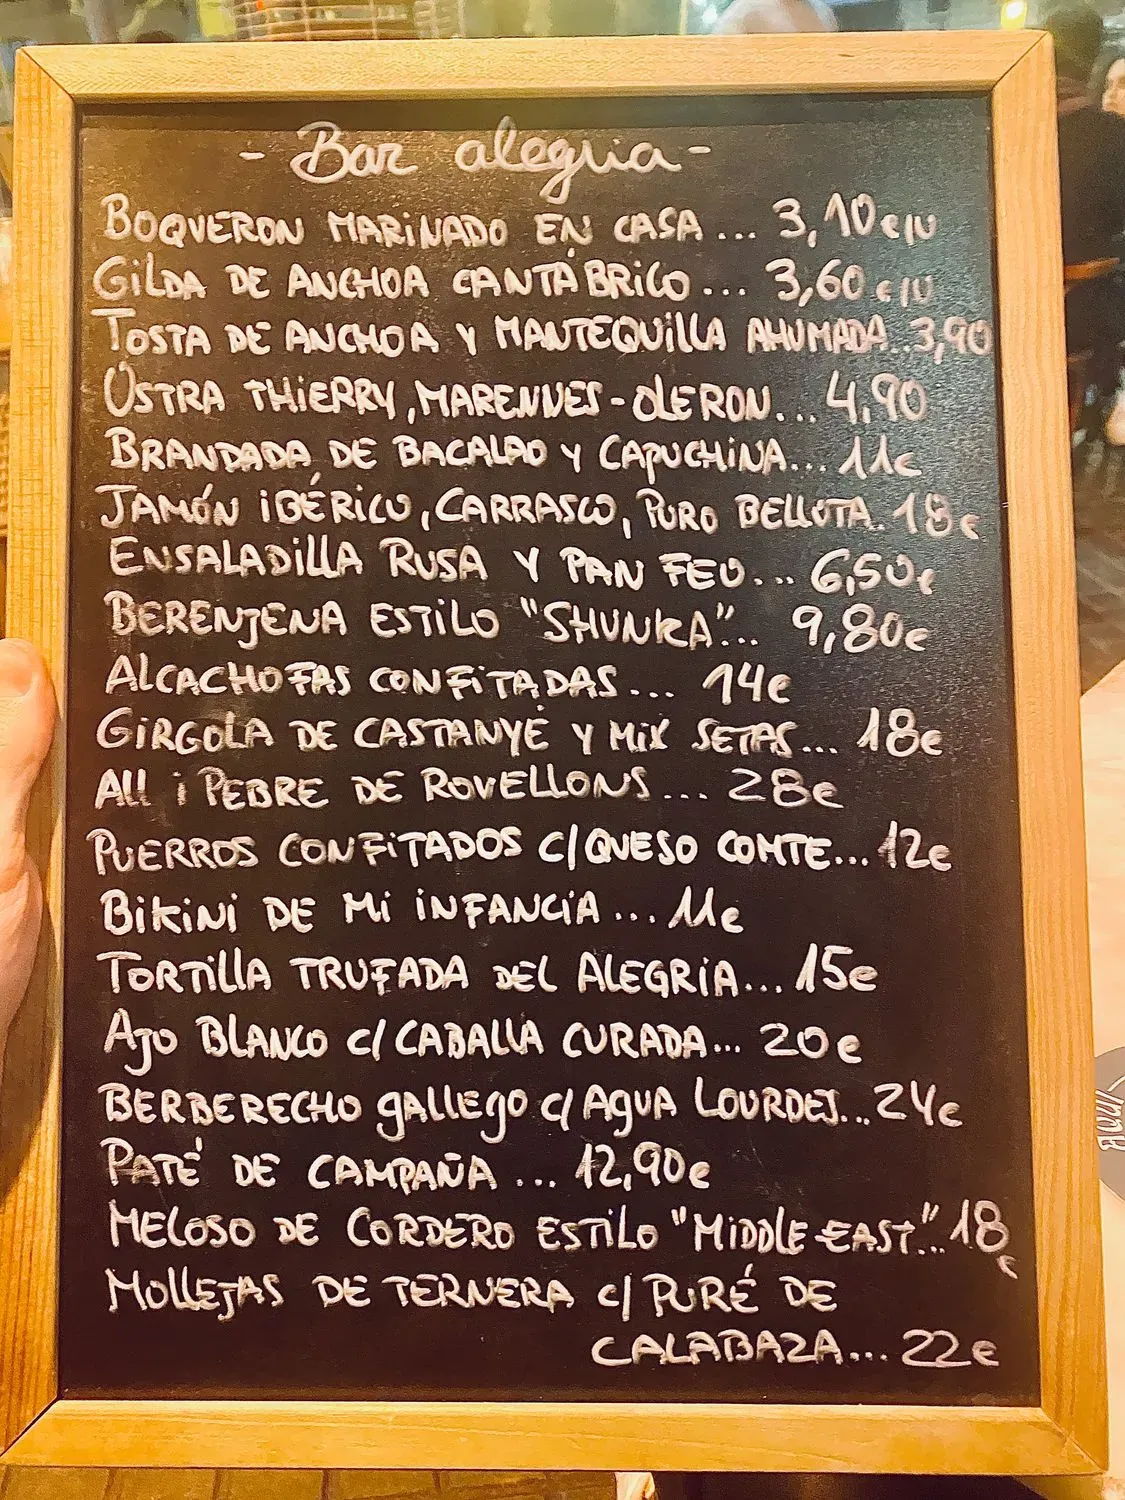 - Bar alegria -
BOQUERON MARINADO EN CASA ... 3,10 €/U
GILDA DE ANCHOA CANTÁBRICO ... 3,60 €/U
TOSTA DE ANCHOA Y MANTEQUILLA AHUMADA..3,90
OSTRA THIERRY, MARENNES-OLERON... 4,90
BRANDADA DE BACALAO Y CAPUCHINA... 11€
JAMÓN IBÉRICO, CARRASCO, PURO BELLOTA. 18€
ENSALADILLA RUSA Y PAN FEO... 6,50€
BERENJENA ESTILO "SHUNKA"... 9,80€
ALCACHOFAS CONFITADAS... 14€
GIRGOLA DE CASTANYÉ Y MIX SETAS... 18€
ALL i PEBRE DE ROVELLONS... 28€
PUERROS CONFITADOS C/QUESO COMTE... 12€
BIKINI DE MI INFANCIA ... 11€
TORTILLA TRUFADA DEL ALEGRIA... 15€
AJO BLANCO C/ CABALLA CURADA... 20€
BERBERECHO gALLEgO C/ AGUA LOURDES...24€
PATÉ DE CAMPAÑA ... 12,90€
MELOSO DE CORDERO ESTILO "MIDDLE-EAST"... 18€
MOLLEJAS DE TERNERA C/ PURÉ DE
CALABAZA... 22€